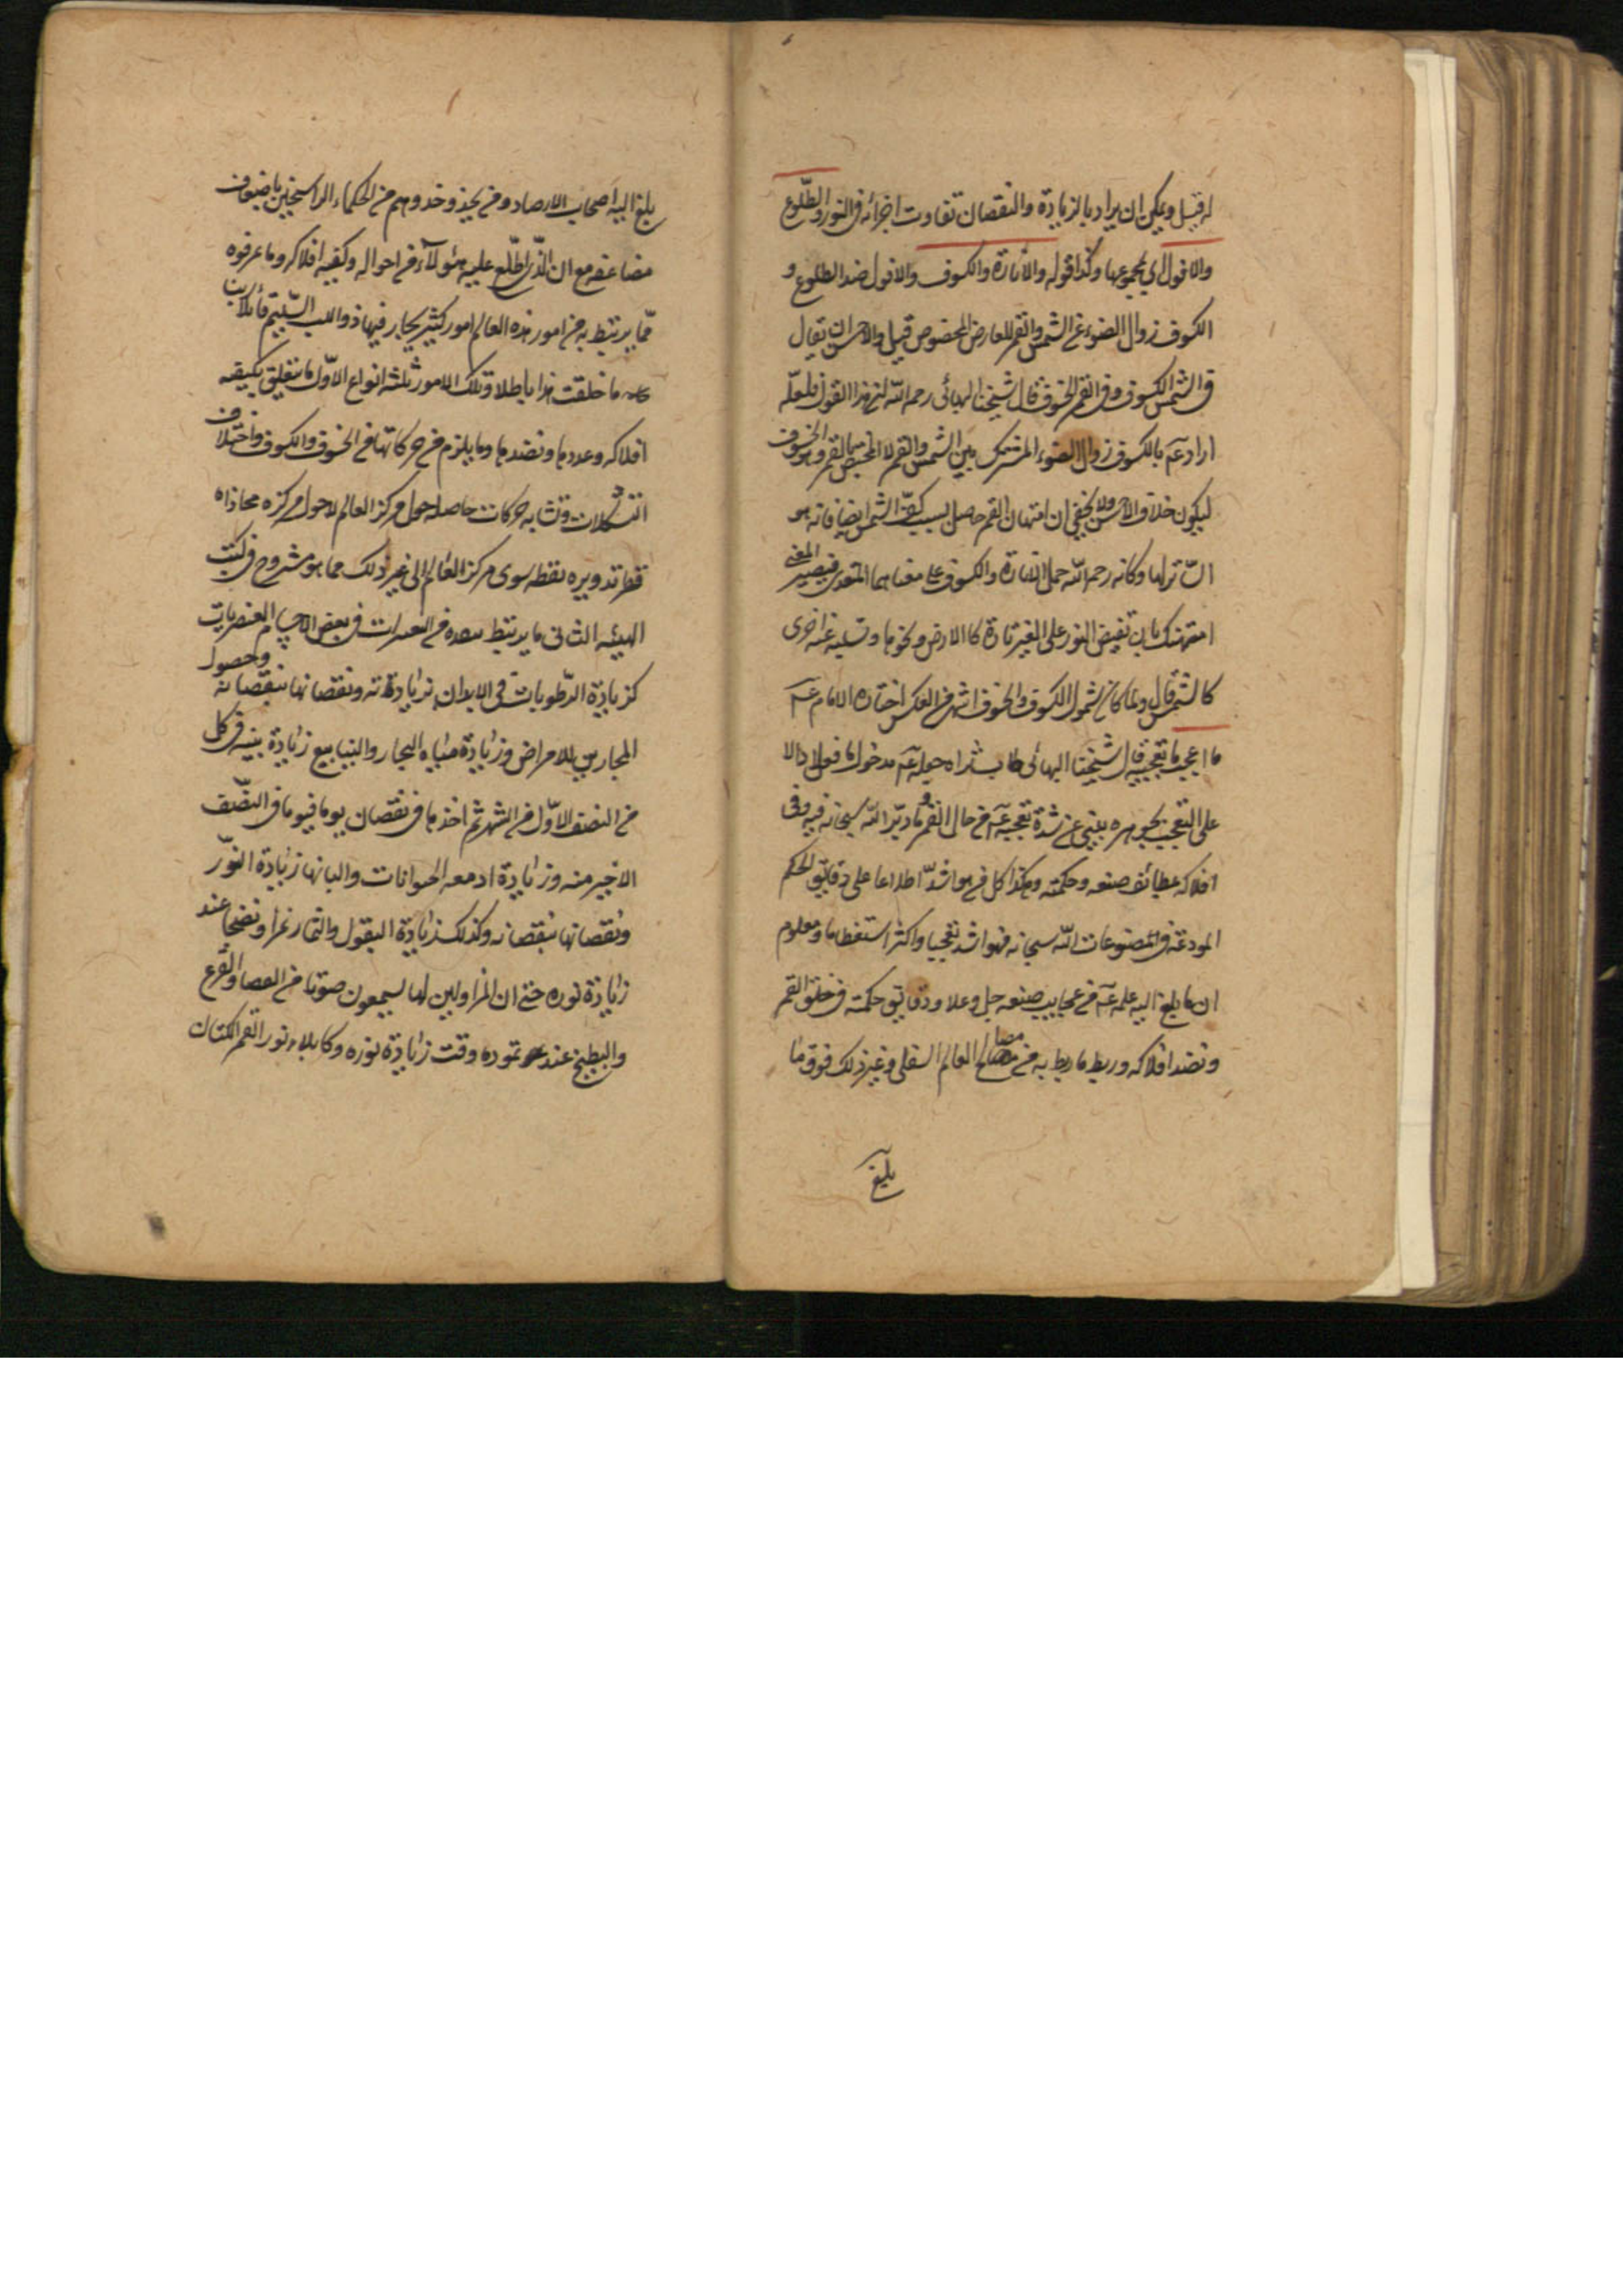 له قيل ويمكن ان يراد بالزيادة والنقصان تفاوت اجزائه في النور والطلوع
والافول الي مجموعها وكذا قوله والانارة والكسوف والافول ضد الطلوع و
الكسوف زوال الضوء عن الشمس والقمر للعارض المخصوص قيل والاحسن ان يقال
في الشمس الكسوف وفي القمر الخسوف قال شيخنا البهائي رحمه الله هذا القول فلعله
اراد عم بالكسوف زوال الضوء المشترك بين الشمس والقمر لا المختص بالقمر وهو الخسوف
ليكون خلاف الاحسن ولا يخفى ان امتهان القمر حاصل بسبب كسف الشمس ايضا فانه هو
الساتر لها وكانه رحمه الله حمل الانارة والكسوف على معناهما المتعدي فيصير المعنى
امتهنك بان تفيض النور على الغير تارة كالارض ونحوها وتسلبه عنه اخرى
كالشمس قال ولما كان شمول الكسوف والخسوف اشهر من العكس اختاره الامام عم
ما اعجب ما تعجبيه قال شيخنا البهائي طاب ثراه جعله عم مدخول ما فعلا دالا
على التعجب بجوهره ينبئ عن شدة تعجبه عم من حال القمر وما دبر الله سبحانه فيه وفي
افلاكه بلطائف صنعه وحكمته وهكذا كل من هو اشد اطلاعا على دقايق الحكم
المودعة في مصنوعات الله سبحانه فهو اشد تعجبا واكثر استعظاما ومعلوم
ان ما بلغ اليه علمه عم من عجايب صنعه جل وعلا ودقايق حكمته في خلق القمر
ونضد افلاكه وربط ما ربط به من مصالح العالم السفلي وغير ذلك فوق ما
بلغ
بلغ اليه اصحاب الارصاد ومن يحذو حذوهم من الحكماء الراسخين باضعاف
مضاعفه مع ان الذي اطلع عليه هؤلاء من احواله وكيفيه افلاكه وما عرفوه
مما يرتبط به من امور هذه العالم امور كثير يحار فيها ذو اللب السليم قائلا ربنا
ما خلقت هذا باطلا وتلك الامور ثلثه انواع الاول ما يتعلق بكيفيه
افلاكه وعددها ونضدها وما يلزم من حركاتها من الخسوف والكسوف واختلاف
التشكلات وتشابه حركات حامله حول مركز العالم لا حول مركزه محاذاه
قطر تدويره نقطه سوى مركز العالم الى غير ذلك مما هو مشروح في كتب
الهيئه الثاني ما يرتبط من التغيرات في بعض الاجسام العنصريات
كزيادة الرطوبات في الابدان بزيادته ونقصانها بنقصانه وحصول
البحارين للامراض وزيادة مياه البحار والينابيع زيادة بينه في كل
من النصف الاول من الشهر ثم اخذها في نقصان يوما فيوما في النصف
الاخير منه وزيادة ادمغه الحيوانات والبانها زيادة النور
ونقصانها بنقصانه وكذلك زيادة البقول والثمار نموا ونضجا عند
زيادة نوره حتى ان المزاولين لها يسمعون صوتا من القرع
والبطيخ عند تموده وقت زيادة نوره وكابلاء نور القمر الكتان